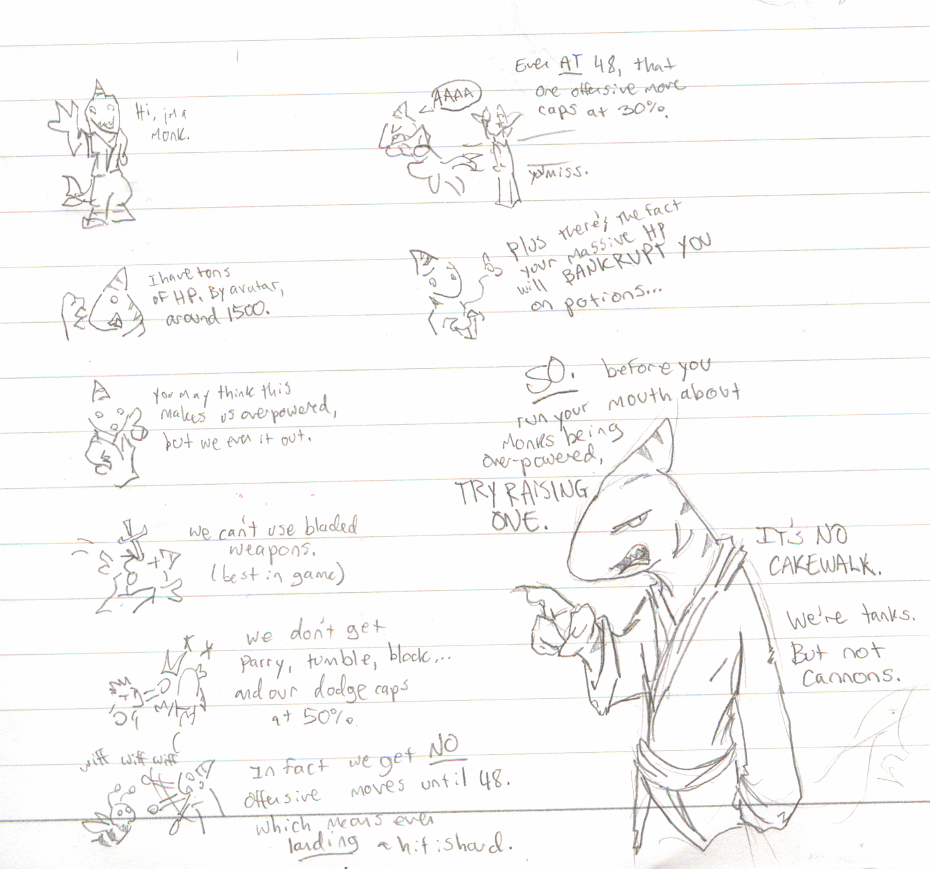 Hi, im a
Monk.
I have tons
OF HP. By avatar,
around 1500.
You may think this
makes us overpowered,
but we even it out.
we can't use bladed
weapons.
(best in game)
we don't get
Parry, tumble, block...
and our dodge caps
at 50%.
wiff wiff wiff
In fact we get NO
offensive moves until 48.
which means even
landing a hit is hard.
Even AT 48, that
one offensive move
caps at 30%.
AAAA
you miss.
Plus there's the fact
your massive HP
will BANKRUPT YOU
on potions...
SO. before you
run your mouth about
Monks being
over-powered,
TRY RAISING
ONE.
IT'S NO
CAKEWALK.
We're tanks.
But not
Cannons.